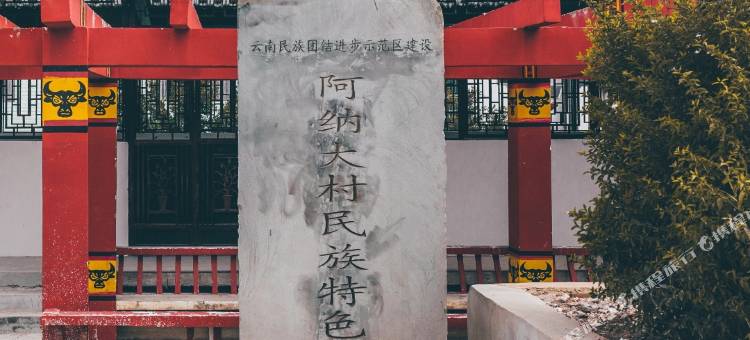 云南民族团结进步示范区建设
阿纳大村民族特色
携程旅行